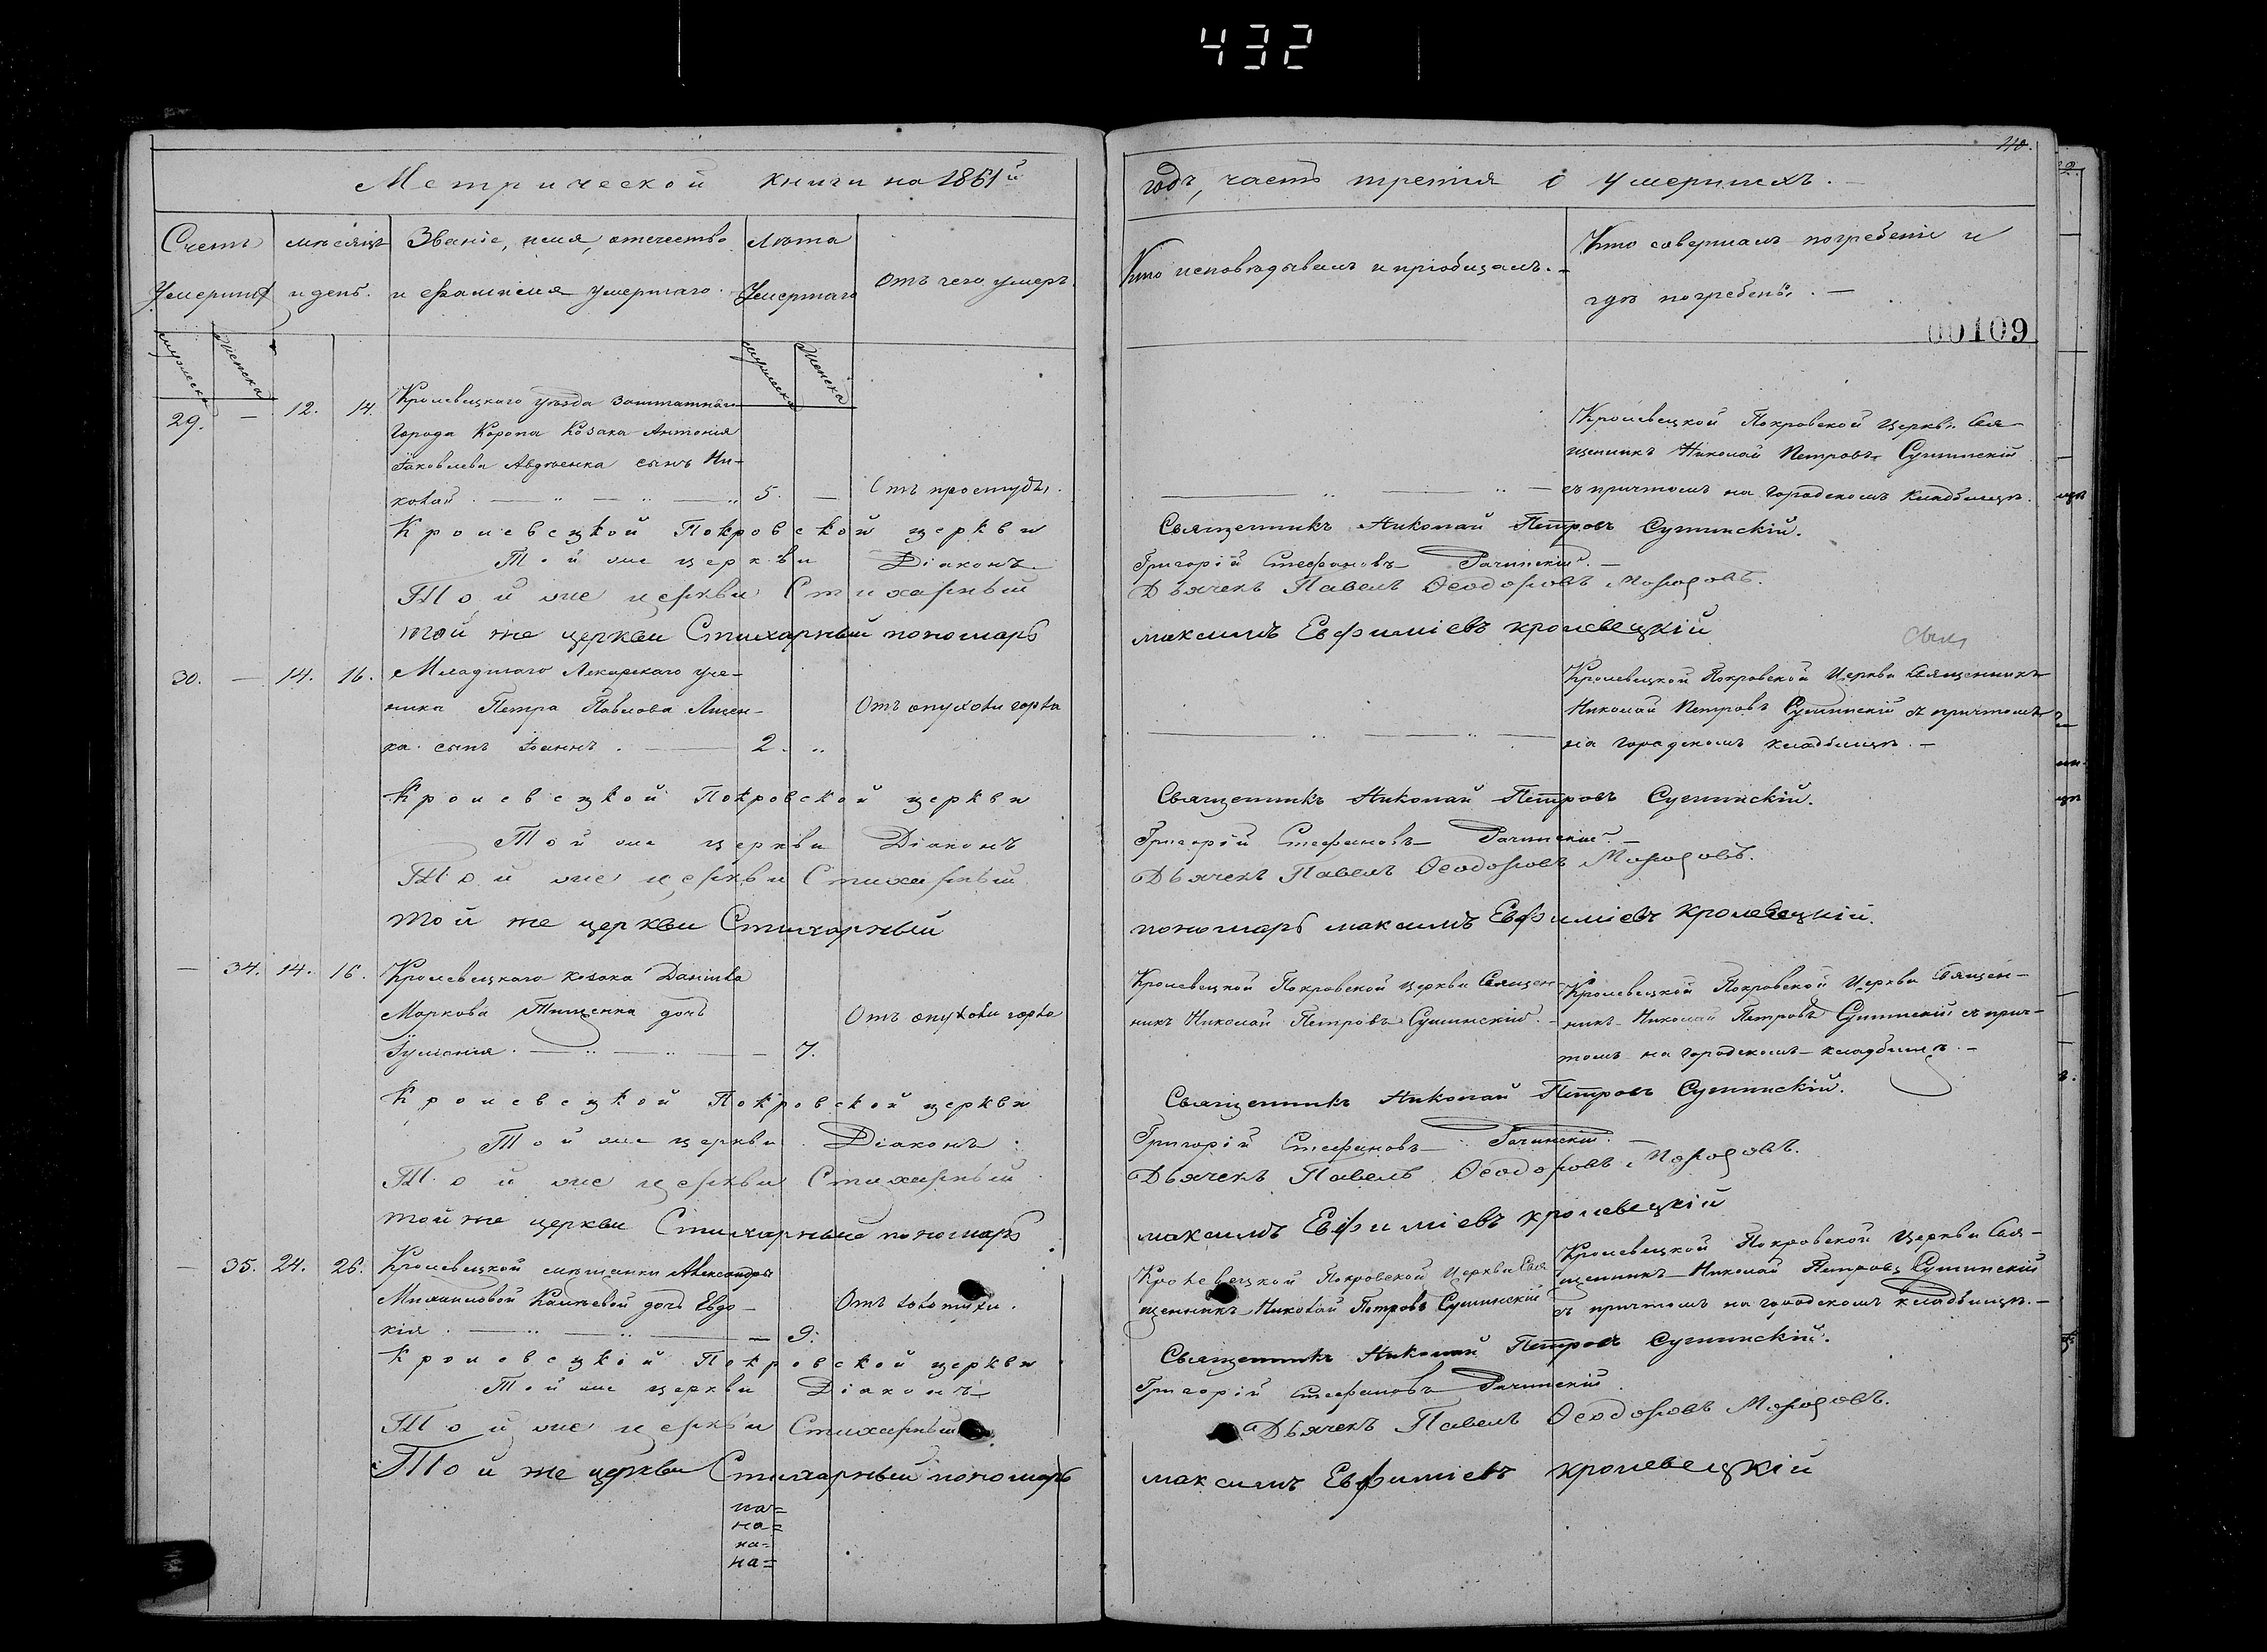 432
Метрической книги на 1861й
годъ, часть третія о умершихъ.
110.
Счетъ умершихъ
мѣсяцъ и день.
Званіе, имя, отчество и фамилія умершаго.
Лѣта умершаго
Отъ чего умеръ.
Кто исповѣдывалъ и пріобщалъ.
Кто совершалъ погребеніе и
гдѣ погребены.
00109
мужеска женска
мужеска женска
29. — 12. 14.
Кролевецкаго уѣзда заштатнаго
города Коропа козака Антонія
Іаковлева Авдѣенка сынъ Ни-
колай. 5. —
Отъ простуды.
Кролевецкой Покровской Церкви Свя-
щенникъ Николай Петровъ Сушинскій
съ причтомъ на городскомъ кладбищѣ.
Кролевецкой Покровской церкви Священникъ Николай Петровъ Сушинскій.
Той же церкви Діаконъ Григорій Стефановъ Рачинскій.
Той же церкви Стихарный Дьячекъ Павелъ Ѳеодоровъ
той же церкви Стихарный пономарь максимъ Евфиміевъ кролевецкій
30. — 14. 16.
Младшаго Лекарскаго уче-
ника Петра Павлова
сынъ Іоаннъ. 2.
Отъ опухоли горла
Кролевецкой Покровской Церкви Священникъ
Николай Петровъ Сушинскій съ причтомъ
на городскомъ кладбищѣ.
Кролевецкой Покровской церкви Священникъ Николай Петровъ Сушинскій.
Той же церкви Діаконъ Григорій Стефановъ Рачинскій.
Той же церкви Стихарный Дьячекъ Павелъ Ѳеодоровъ
той же церкви Стихарный пономарь максимъ Евфиміевъ кролевецкій.
— 34. 14. 16.
Кролевецкаго козака Даніила
Маркова Тищенка дочь
Іуліанія. 7.
Отъ опухоли горла
Кролевецкой Покровской церкви Священ-
никъ Николай Петровъ Сушинскій.
Кролевецкой Покровской Церкви Священ-
никъ Николай Петровъ Сушинскій съ прич-
томъ на городскомъ кладбищѣ.
Кролевецкой Покровской церкви Священникъ Николай Петровъ Сушинскій.
Той же церкви Діаконъ Григорій Стефановъ Рачинскій.
Той же церкви Стихарный Дьячекъ Павелъ Ѳеодоровъ
той же церкви Стихарный пономарь максимъ Евфиміевъ кролевецкій
— 35. 24. 26.
Кролевецкой мѣщанки Александры
Михаиловой дочь Евдо-
кія. 9.
Отъ золотухи.
Кролевецкой Покровской Церкви Свя
щенникъ Николай Петровъ Сушинскій
Кролевецкой Покровской Церкви Свя-
щенникъ Николай Петровъ Сушинскій
съ причтомъ на городскомъ кладбищѣ.
Кролевецкой Покровской церкви Священникъ Николай Петровъ Сушинскій.
Той же церкви Діаконъ Григорій Стефановъ Рачинскій
Той же церкви Стихарный Дьячекъ Павелъ Ѳеодоровъ
Той же церкви Стихарный пономарь максимъ Евфиміевъ кролевецкій
на=
на=
на=
на=